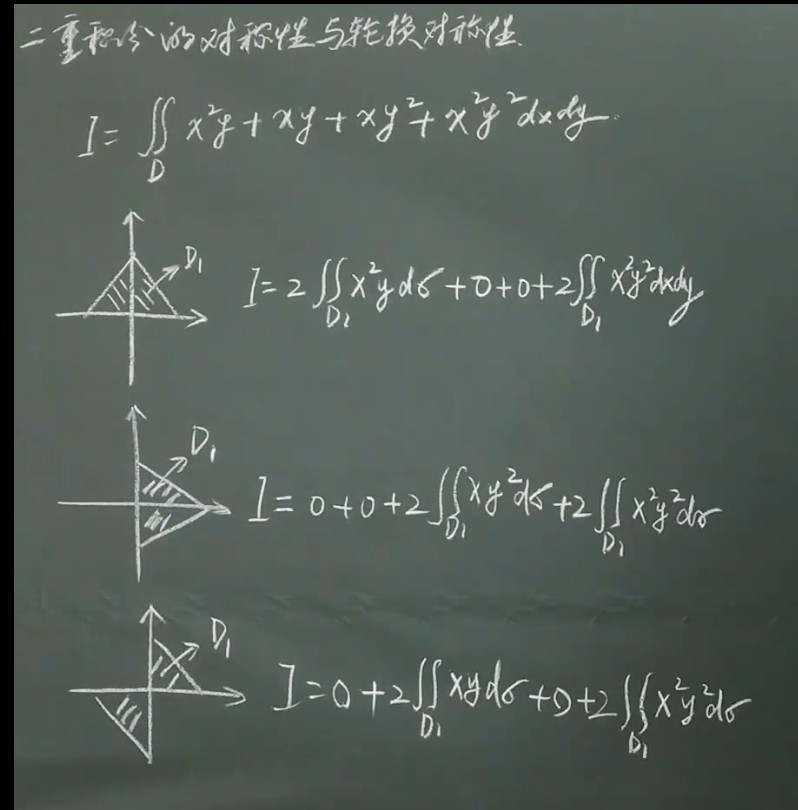 二重积分的对称性与轮换对称性.
I = ∬_D x²y + xy + xy² + x²y² dxdy.
D₁
I = 2∬_{D₁} x²y dσ + 0 + 0 + 2∬_{D₁} x²y² dxdy
D₁
I = 0 + 0 + 2∬_{D₁} xy² dσ + 2∬_{D₁} x²y² dσ
D₁
I = 0 + 2∬_{D₁} xy dσ + 0 + 2∬_{D₁} x²y² dσ